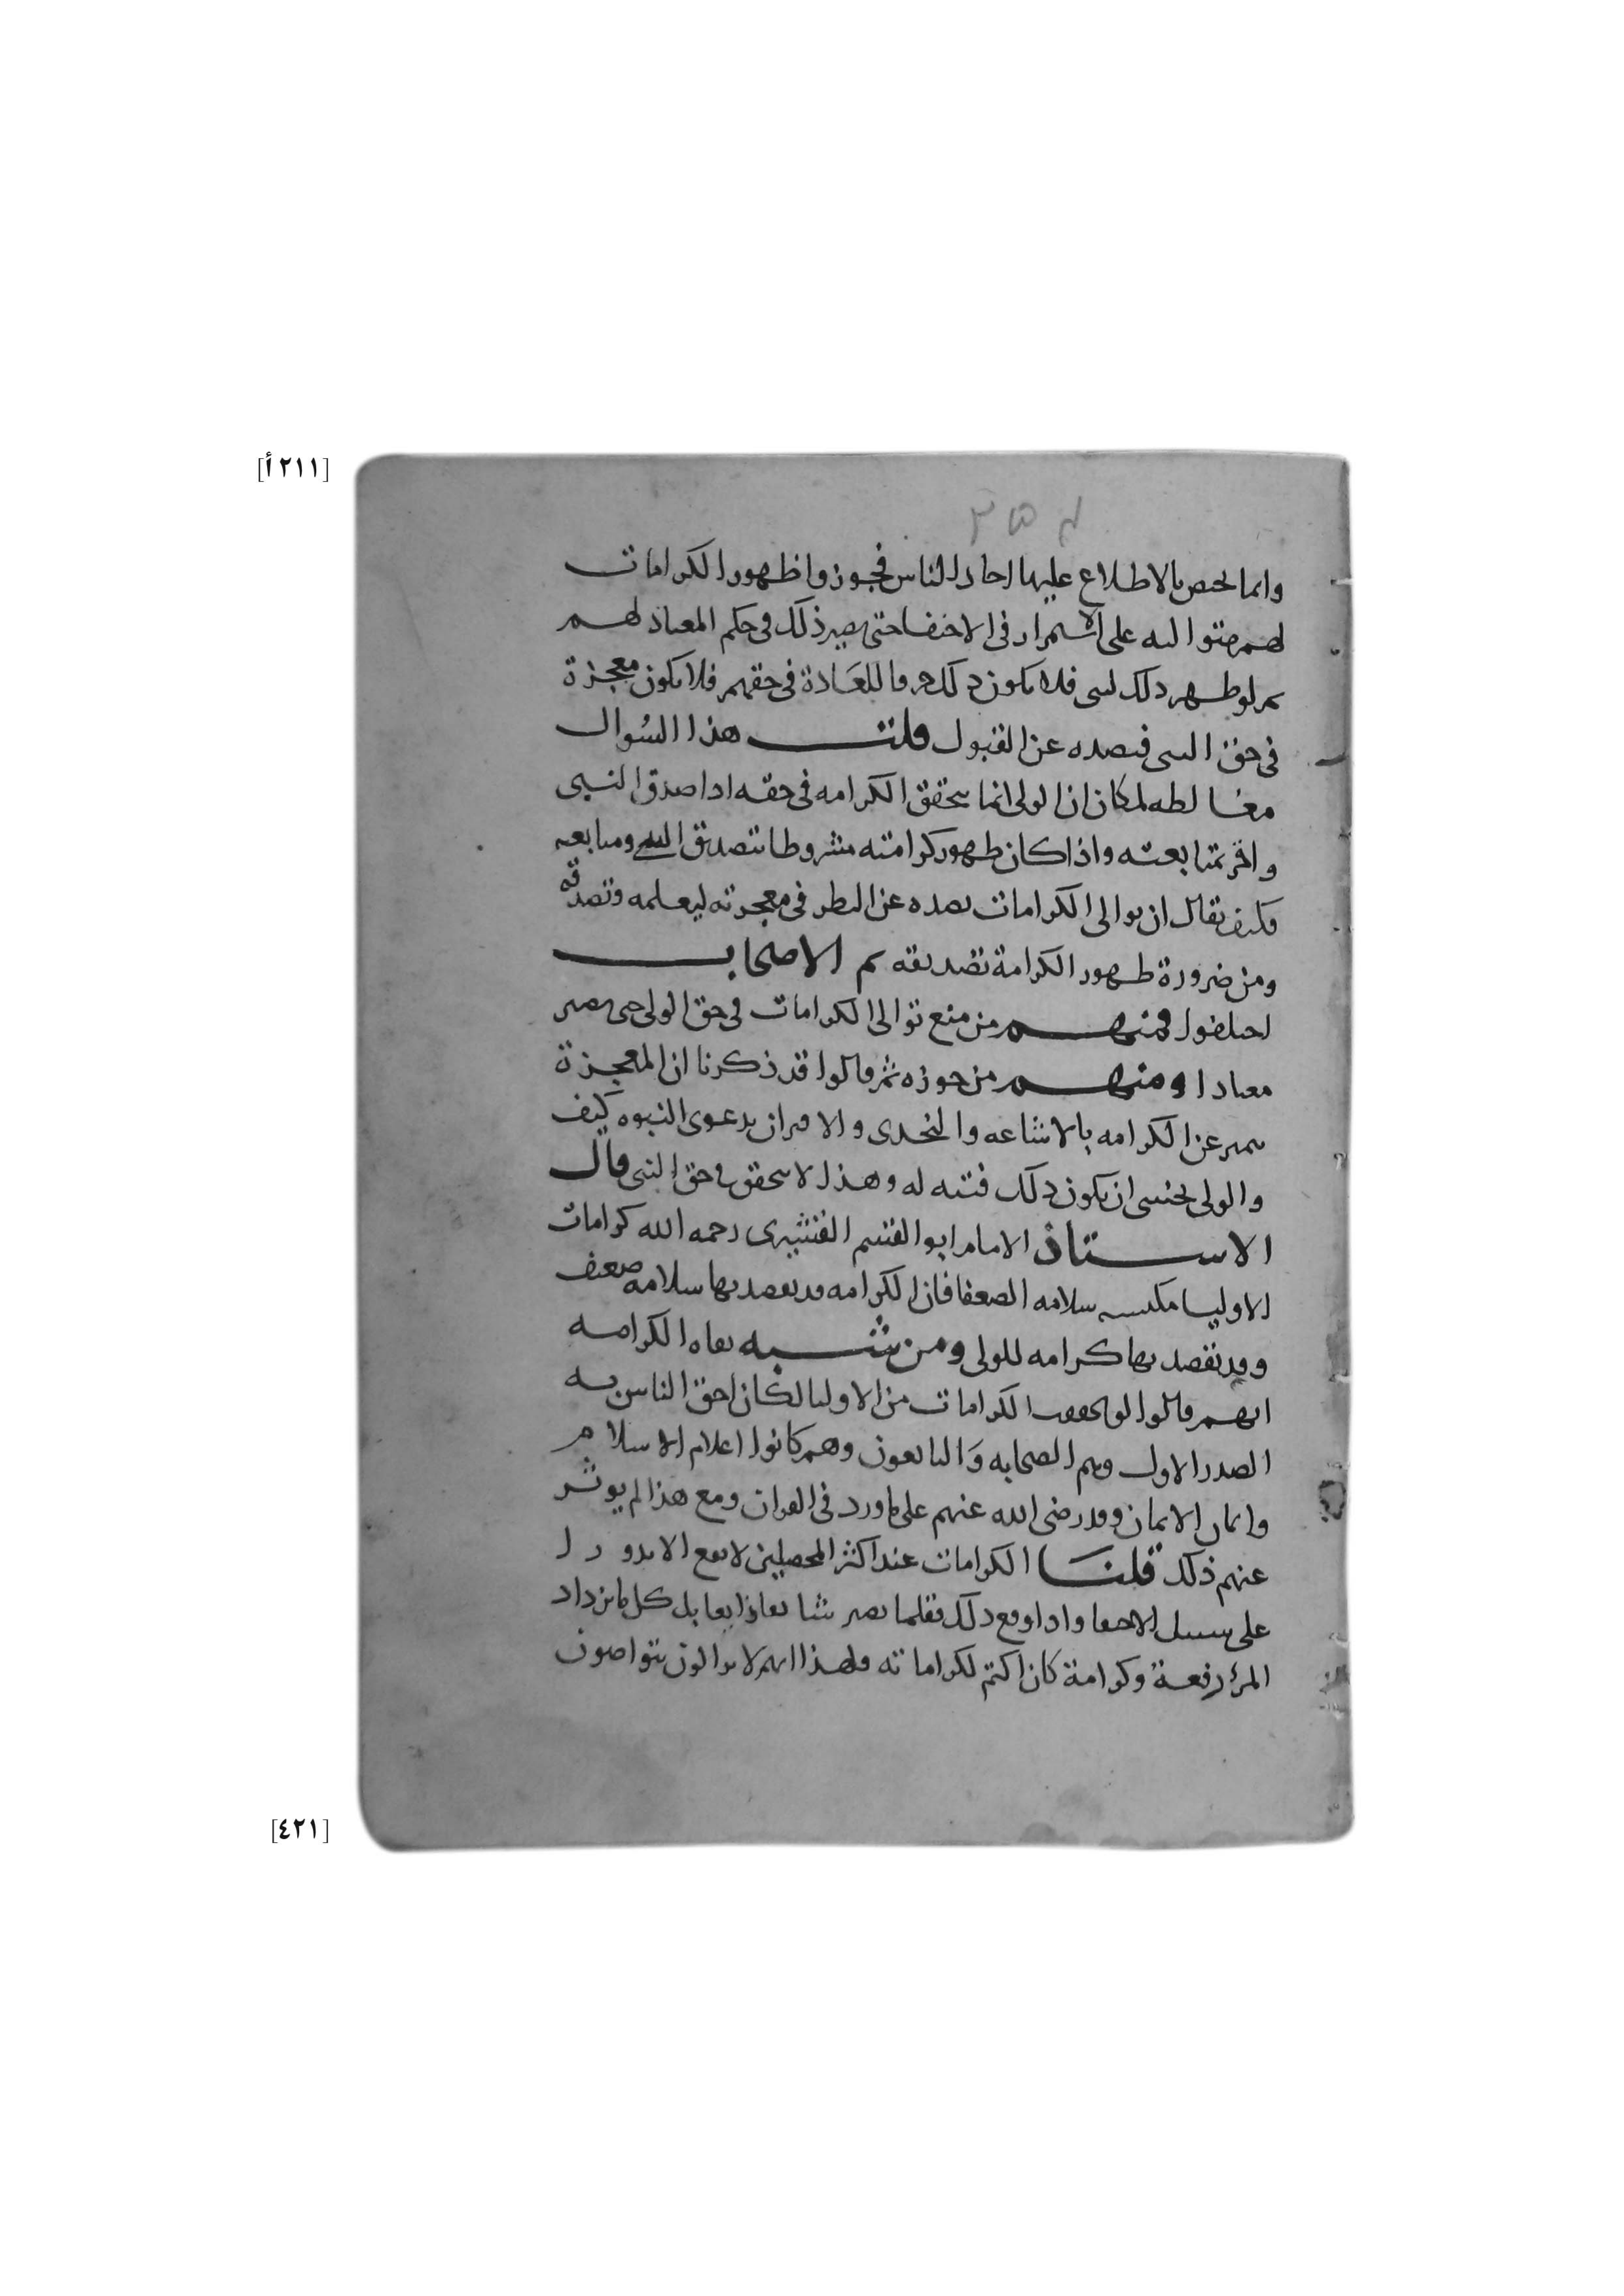 [٢١١ أ]
وانما يختص بالاطلاع عليها احاد الناس فجوزوا ظهور الكرامات
لهم متواليه على الاستمرار في الاختفا حتى يصير ذلك في حكم المعتاد لهم
ثم لو ظهر ذلك لنبى فلا يكون ذلك خرقا للعادة في حقهم فلا يكون معجزة
في حق النبى فيصده عن القبول قلت هذا السُوال
مغالطه لمكان ان الولى انما يتحقق الكرامه في حقه اذا صدق النبى
واقر بمتابعته واذا كان ظهور كرامته مشروطا بتصديق النبى ومتابعته
فكيف يقال ان توالى الكرامات يصده عن النظر في معجزته ليعلمه وتصدقه
ومن ضرورة ظهور الكرامة تصديقه ثم الاصحاب
اختلفوا فمنهم من منع توالى الكرامات في حق الولى حتى يصير
معتادا ومنهم من جوزه ثم قالوا قد ذكرنا ان المعجزة
تتميز عن الكرامه بالاشاعه والتحدى والاقتران بدعوى النبوه كيف
والولى يخشى ان يكون ذلك فتنه له وهذا لا يتحقق في حق النبى قال
الاستاذ الامام ابو القسم القشيرى رحمه الله كرامات
الاوليا سلامه الضعفا فان الكرامه قد يقصد بها سلامه ضعيف
وقد يقصد بها كرامه للولى ومن شبه نفاه الكرامه
انهم قالوا لو تحققت الكرامات من الاوليا لكان احق الناس به
الصدر الاول وهم الصحابه والتابعون وهم كانوا اعلام الاسلام
الايمان وقد رضى الله عنهم على ما ورد في القران ومع هذا لم يوثر
عنهم ذلك قلنا الكرامات عند اكثر المحصلين لا تقع الا ندورا
على سبيل الاختفا واذا وقع ذلك فقلما يصير شايعا ذايعا بل كل ما يزداد
المرؤ رفعة وكرامة كان اكتم لكراماته ولهذا انهم لا يزالون يتواصون
[٤٢١]